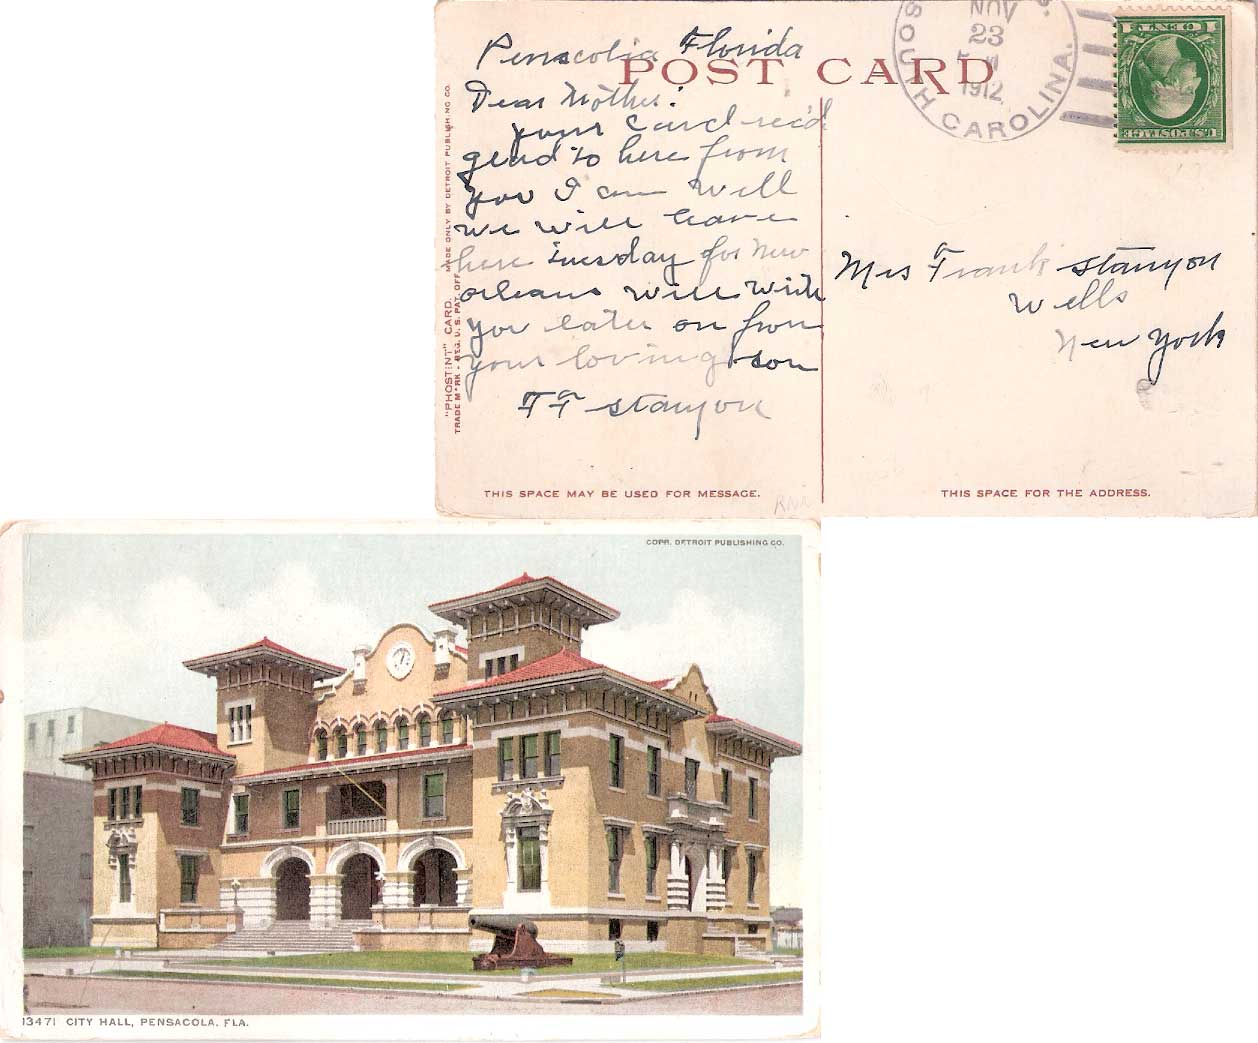 POST CARD
NOV
23
1912
SOUTH CAROLINA.
1 CENT 1
U.S. POSTAGE
"PHOSTINT" CARD. MADE ONLY BY DETROIT PUBLISHING CO.
TRADE MARK - REG. U.S. PAT. OFF.
Penscolia Florida
Dear Mother:
your card rec'd
glad to here from
you I am well
we will leave
here Tuesday for New
orleans will write
you later on from
your loving son
F F Stanyon
Mrs Frank Stanyon
Wells
New York
THIS SPACE MAY BE USED FOR MESSAGE.
THIS SPACE FOR THE ADDRESS.
COPR. DETROIT PUBLISHING CO.
13471 CITY HALL, PENSACOLA, FLA.